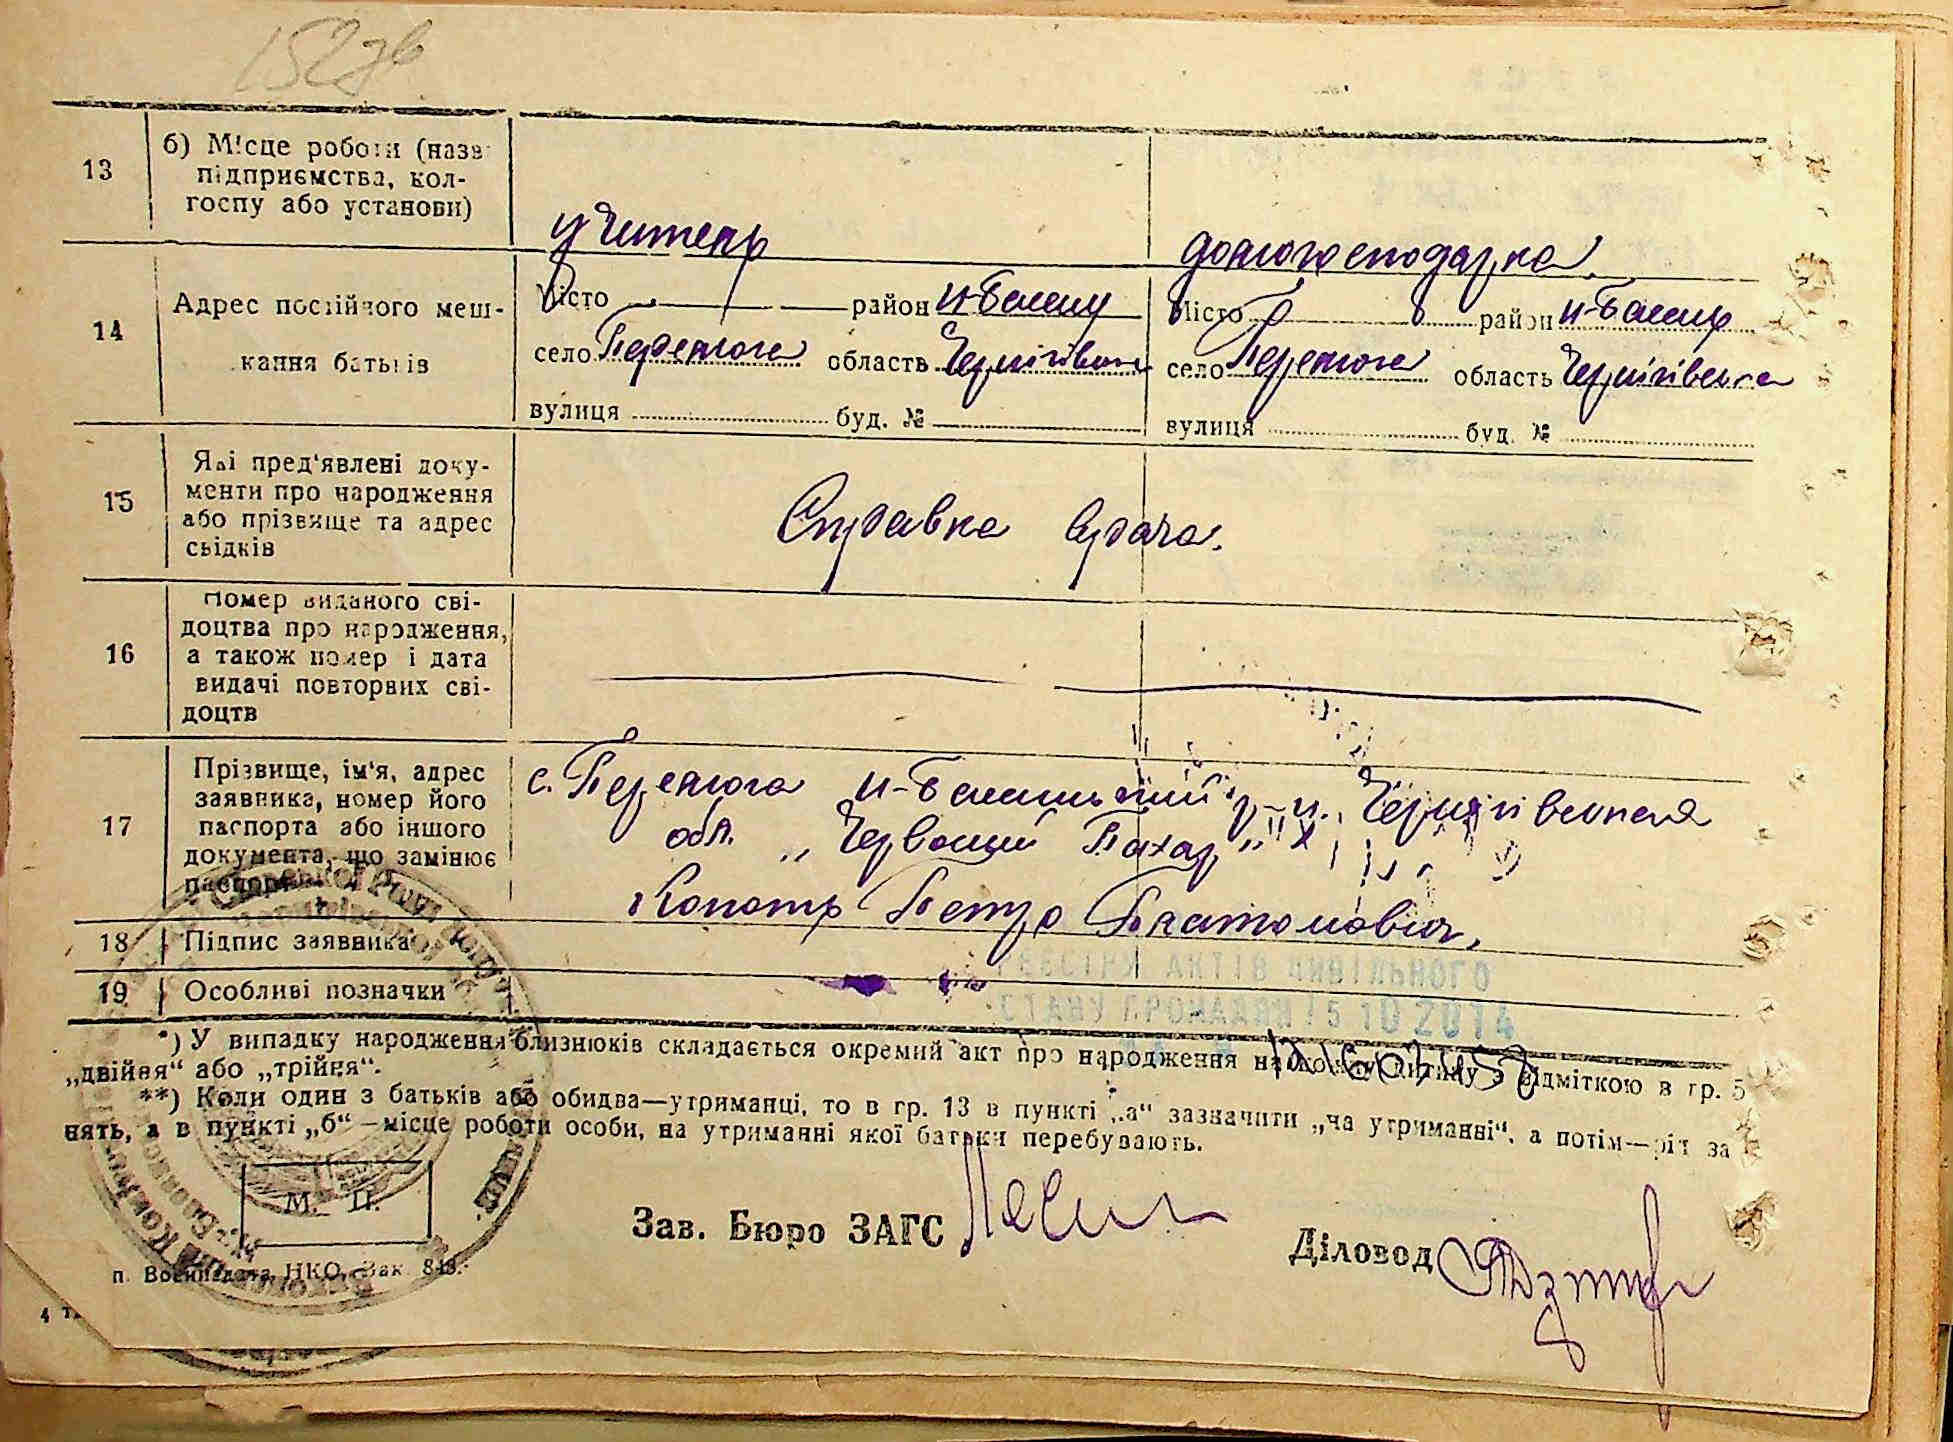 13 б) Місце роботи (назв підприємства, кол-
госпу або установи)
учитель
домогосподарка
14 Адрес постійного меш-
кання батьків
місто район
село Перемога область Чернігівськ
вулиця буд. №
місто район
село Перемога область Чернігівська
вулиця буд. №
15 Які пред'явлені доку-
менти про народження
або прізвище та адрес
свідків
Справка врача.
16 Номер виданого сві-
доцтва про народження,
а також номер і дата
видачі повторних сві-
доцтв
17 Прізвище, ім'я, адрес
заявника, номер його
паспорта або іншого
документа, що замінює
паспорт
с. Перемога р-н. Чернігівської
обл. „Червоний Пахар"
Копоть Петро Платонович,
18 Підпис заявника
19 Особливі позначки
РЕЄСТРИ АКТІВ ЦИВІЛЬНОГО
СТАНУ ГРОМАДЯН 15 10 2014
*) У випадку народження близнюків складається окремий акт про народження на кожну дитину з відміткою в гр. 5
„двійня" або „трійня".
**) Коли один з батьків або обидва—утриманці, то в гр. 13 в пункті „а" зазначити „на утриманні", а потім—рід за
нять, а в пункті „б"—місце роботи особи, на утриманні якої батьки перебувають.
М. П.
Зав. Бюро ЗАГС
Діловод
п. Воениздата НКО, Зак. 848.